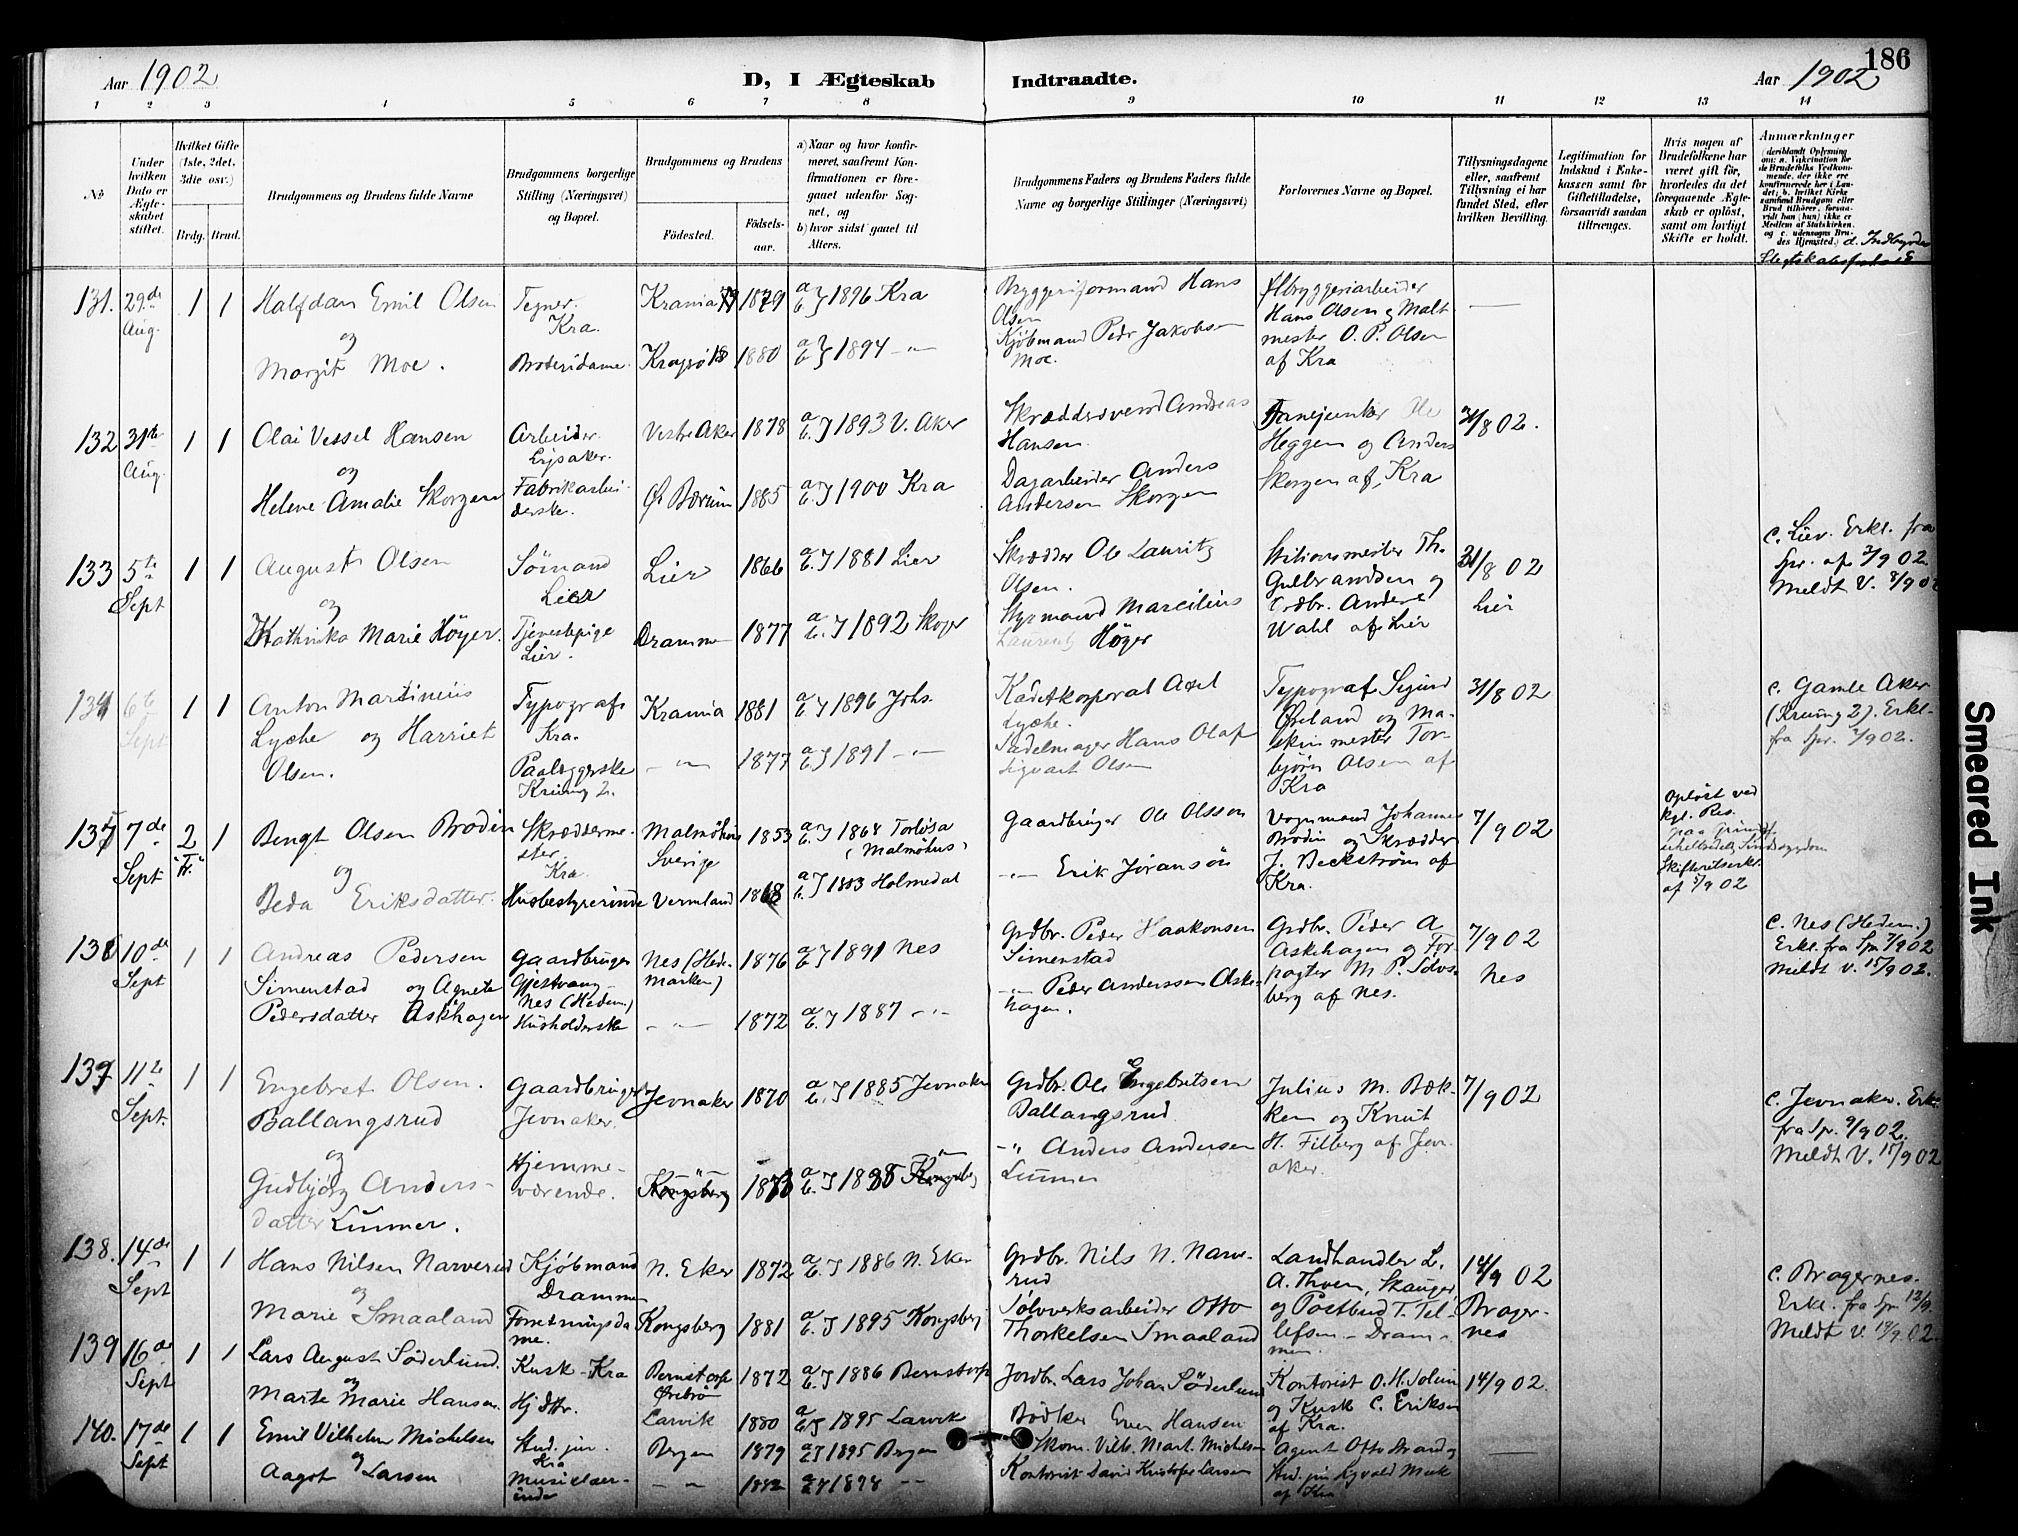 186
Aar 1902
D, I Ægteskab Indtraadte.
Aar 1902
1 2 3 4 5 6 7 8 9 10 11 12 13 14
No
Under hvilken Dato er Ægteskabet stiftet.
Hvilket Gifte (1ste, 2det, 3die osv.)
Brdg. Brud.
Brudgommens og Brudens fulde Navne
Brudgommens borgerlige Stilling (Næringsvei) og Bopæl.
Brudgommens og Brudens
Fødested.
Fødselsaar.
a) Naar og hvor konfirmeret, saafremt Konfirmationen er foregaaet udenfor Sognet, og
b) hvor sidst gaaet til Alters.
Brudgommens Faders og Brudens Faders fulde Navne og borgerlige Stillinger (Næringsvei)
Forlovernes Navne og Bopæl.
Tillysningsdagene eller, saafremt Tillysning ei har fundet Sted, efter hvilken Bevilling.
Legitimation for Indskud i Enkekassen samt for Giftetilladelse, forsaavidt saadan tiltrænges.
Hvis nogen af Brudefolkene har været gift før, hvorledes da det foregaaende Ægteskab er opløst, samt om lovligt Skifte er holdt.
Anmærkninger (deriblandt Oplysning om: a. Vakcination for de Brudefolks Vedkommende, der ikke ere konfirmerede her i Landet; b. hvilket Kirkesamfund Brudgom eller Brud tilhører, forsaavidt han (hun) ikke er Medlem af Statskirken, og c. udensogns Brudes Hjemsted.) d. Indbyrdes
131. 29de Aug. 1 1
Halfdan Emil Olsen
og
Margit Moe.
Tegner. Kra.
Broteridame.
Krania 1879
Kragerø 1880
a b } 1896 Kra
a b } 1894 -"-
Bryggeriformand Hans Olsen
Kjøbmand Pedr Jakobsen Moe.
Ølbryggeriarbeider
Hans Olsen og Malt-
mester O. P. Olsen
af Kra
132 31te Aug. 1 1
Olai Vessel Hansen
og
Helene Amalie Skorgen
Arbeider.
Fabrikarbei-
derske.
Vestre Aker 1878
Ø. Bærum 1885
a b } 1893 V. Aker
a b } 1900 Kra
Skræddersvend Andreas Hansen.
Dagarbeider Anders
Andersen Skorgen
Heggen og Anders
Skorgen af Kra
31/8 02.
133 5te Sept 1 1
August Olsen
og
Kathinka Marie Höyer.
Sømand
Lier
Tjenestepige
Lier.
Lier 1866
Drammen 1877
a b } 1881 Lier
a b } 1892 Skoger
Skrædder Ole Lauritz
Olsen.
Styrmand Marcilius
Laurentz Höyer
Stationsmester Th.
Gulbrandsen og
Grdbr. Anders
Wahl af Lier
31/8 02
Lier
c. Lier. Erkl. fra
Spr. af 2/9 02.
Meldt V. 8/9 02
134 6te Sept 1 1
Anton Martinius
Lyche og Harriet
Olsen.
Typograf
Kra.
Paaleggerske
Krania 1881
-"- 1877
a b } 1896 Johs.
a b } 1891 -"-
Kadetkorporal Axel
Lyche.
Sadelmager Hans Olaf
Sigvart Olsen
Typograf Sigurd
Øveland og Ma-
skinmester Tor-
bjørn Olsen af
Kra
31/8 02
c. Gamle Aker
fra Spr. 2/9 02.
135 7de Sept 2 "Fr." 1
Bengt Olsen Brodin
og
Beda Eriksdatter.
Skrædderme-
ster.
Kra.
Husbestyrerinde
Malmöhus
Sverige 1853
Vermland 1868
a b } 1868 Torlösa
(Malmöhus)
a b } 1883 Holmedal
Gaardbruger Ole Olsson
-"- Erik Jöransön
Vognmand Johannes
Brodin og Skrædder
J. Beckström af
Kra.
7/9 02
Opløst ved
Kgl. Res.
paa Grund af
Skifteretserkl.
af 5/9 02
136 10de Sept 1 1
Andreas Pedersen
Simenstad og Agnete
Pedersdatter Askhagen
Gaardbruger
Gjestvang
Nes (Hedem.)
Husholderske
Nes (Hede-
marken) 1876
-"- 1872
a b } 1891 Nes
a b } 1887 -"-
Grdbr. Peder Haakonsen
Simenstad
-"- Peder Anderssen Aske-
hagen.
Grdbr. Peder A.
Askehagen og For-
pagter M. P. Solos-
berg af Nes.
7/9 02
Nes
c. Nes (Hedem.)
Erkl. fra Spr. 7/9 02
Meldt v. 15/9 02.
137 11te Sept. 1 1
Engebret Olsen.
Ballangsrud
og
Gudbjörg Anders-
datter Lunner.
Gaardbruger
Jevnaker.
Hjemme-
værende.
Jevnaker 1870
-"-
Kongsberg 1873
a b } 1885 Jevnaker
a b } 1888 Kongsberg
Grdbr. Ole Engebretsen
Ballangsrud
-"- Anders Andersen
Lunner
Julius M. Bæk-
ken og Knut
H. Filberg af Jevn-
aker.
7/9 02
c. Jevnaker. Erkl.
fra Spr. 9/9 02.
Meldt V. 15/9 02
138. 14de Sept 1 1
Hans Nilsen Narverud
og
Marie Smaaland
Kjøbmand
Drammen
Forretningsda-
me.
N. Eker 1872
Kongsberg 1881
a b } 1886 N. Eker
a b } 1895 Kongsberg
Grdbr. Nils N. Narve-
rud
Sølvverksarbeider Otto
Thorkelsen Smaaland
Landhandler L.
A. Thoen, Skauger
og Postbud T. Tel-
lefsen - Dram-
men.
14/9 02
Brager-
nes
c. Bragernes.
Erkl. fra Spr. 12/9.
Meldt V. 19/9 02.
139 16de Sept 1 1
Lars August Söderlund.
og
Marte Marie Hansen.
Kusk - Kra
Hj. dttr.
Bernstorp
Ørebro 1872
Larvik 1880
a b } 1886 Bernstorp
a b } 1895 Larvik
Jordbr. Lars Johan Söderlund
Bødker Even Hansen
Kontorist O. H. Solem
og Kusk C. Eriksen
af Kra.
14/9 02.
140. 17de Sept 1 1
Emil Vilhelm Michelsen
og
Aagot Larsen
Stud. jur.
Kra
Musiklær-
inde
Bergen 1879
-"- 1882
a b } 1895 Bergen
a b } 1898 -"-
Skom. Vilh. Mart. Michelsen
Kontorist David Kristofer Larsen
Agent Otto Strand og
af Kra
Smeared Ink